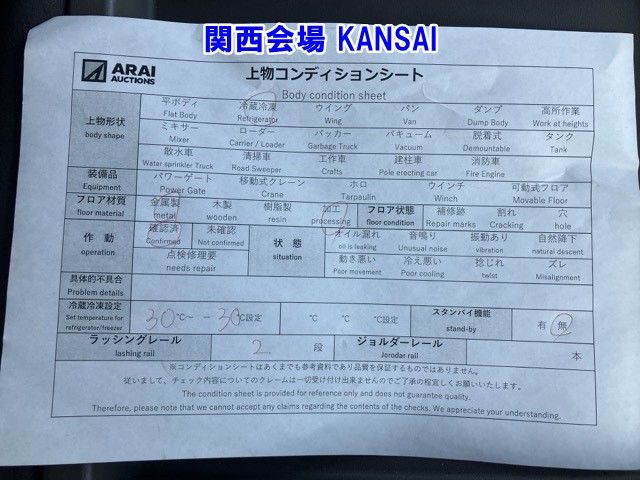 関西会場 KANSAI
ARAI
AUCTIONS
上物コンディションシート
Body condition sheet
上物形状
body shape
平ボディ 冷蔵冷凍 ウイング バン ダンプ 高所作業
Flat Body Refrigerator Wing Van Dump Body Work at heights
ミキサー ローダー パッカー バキューム 脱着式 タンク
Mixer Carrier / Loader Garbage Truck Vacuum Demountable Tank
散水車 清掃車 工作車 建柱車 消防車
Water sprinkler Truck Road Sweeper Crafts Pole erecting car Fire Engine
装備品
Equipment
パワーゲート 移動式クレーン ホロ ウインチ 可動式フロア
Power Gate Crane Tarpaulin Winch Movable Floor
フロア材質
floor material
金属製 木製 樹脂製 加工
metal wooden resin processing
フロア状態
floor condition
補修跡 割れ 穴
Repair marks Cracking hole
作 動
operation
確認済 未確認
Confirmed Not confirmed
点検修理要
needs repair
状 態
situation
オイル漏れ 音鳴り 振動あり 自然降下
oil is leaking Unusual noise vibration natural descent
動き悪い 冷え悪い 捻じれ ズレ
Poor movement Poor cooling twist Misalignment
具体的不具合
Problem details
冷蔵冷凍設定
Set temperature for
refrigerator/freezer
30℃~ -30℃設定 ℃ ℃ ℃設定
スタンバイ機能
stand-by
有 無
ラッシングレール
lashing rail
2 段
ジョルダーレール
Jorodar rail
本
※コンディションシートはあくまでも参考資料であり品質を保証するものではありません。
従いまして、チェック内容についてのクレームは一切受け付け出来ませんのでご了承の程宜しくお願いいたします。
The condition sheet is provided for reference only and does not guarantee quality.
Therefore, please note that we cannot accept any claims regarding the contents of the checks. We appreciate your understanding.